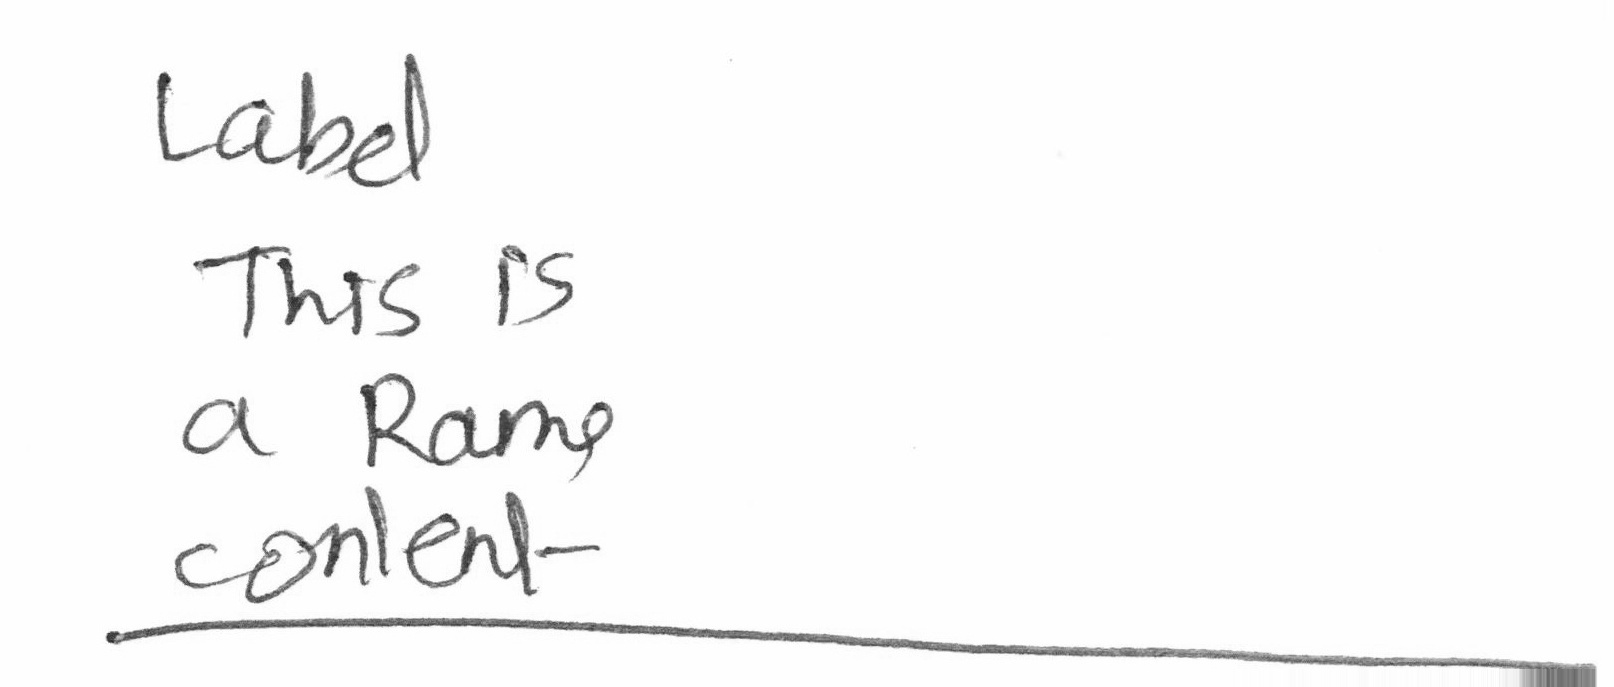 Label
This is
a Rame
content